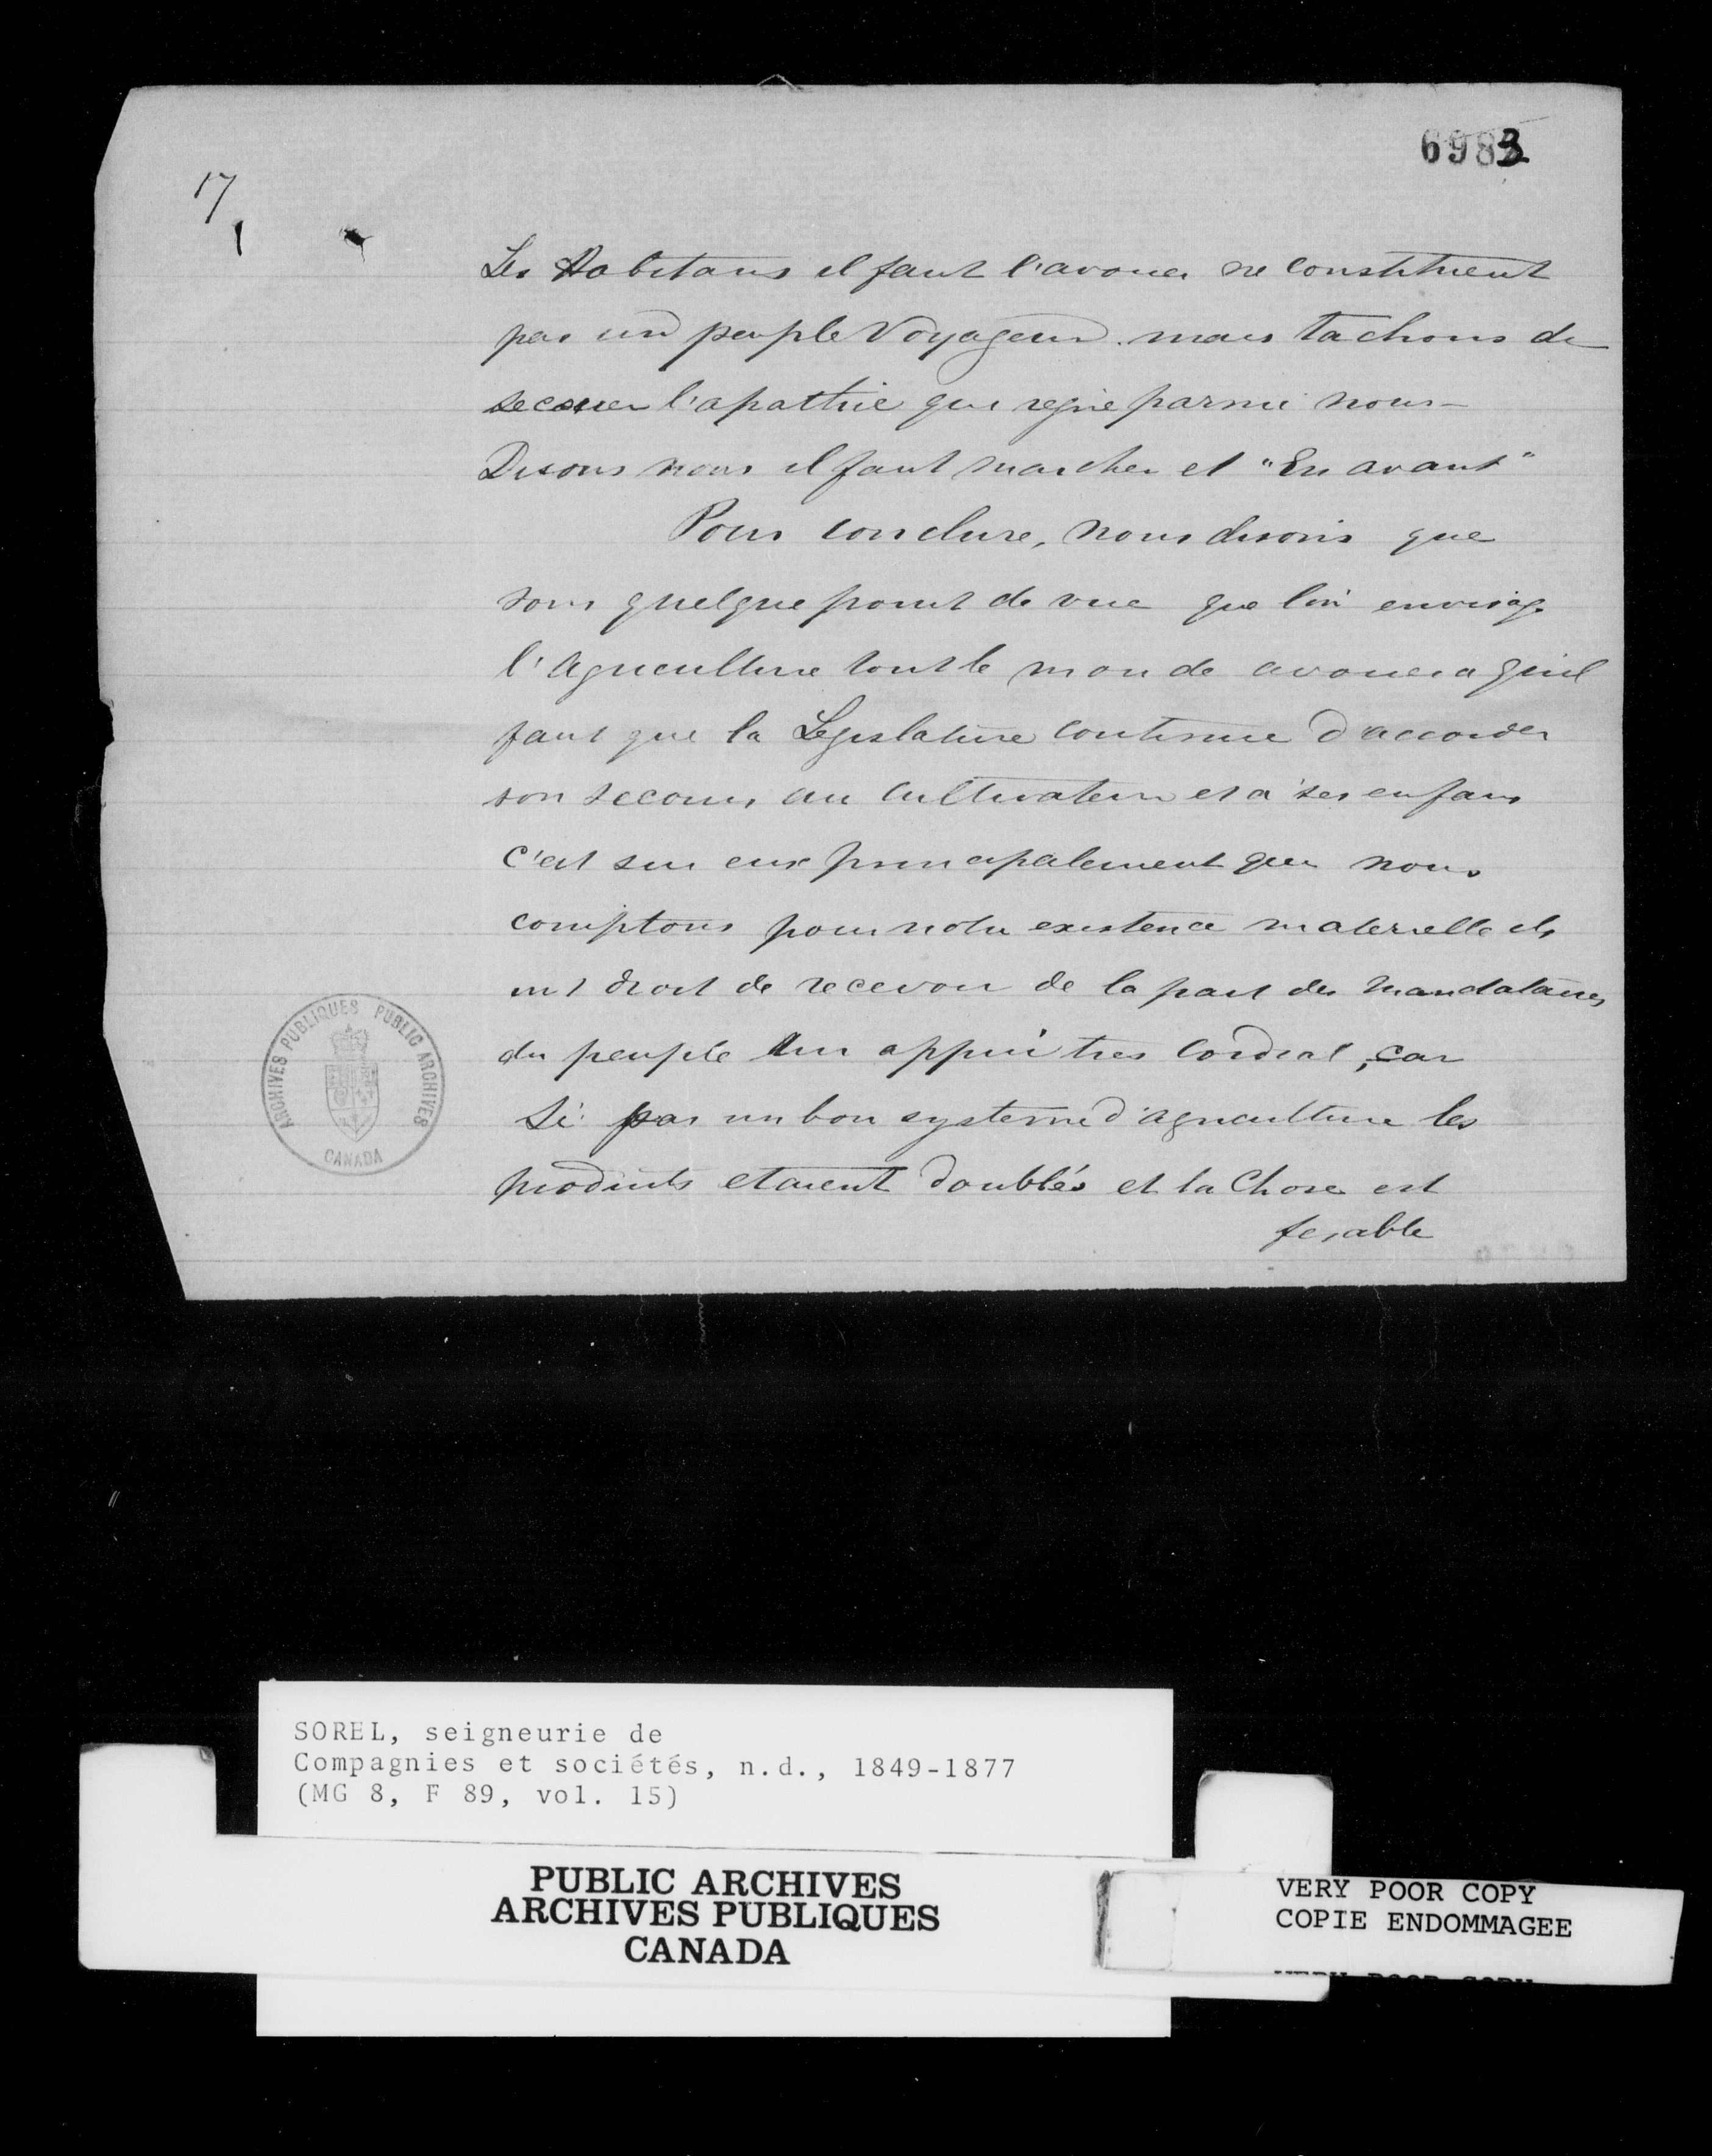 6983
17
Les Habitans il faut l'avouer ne constituent
pas un peuple Voyageur. mais tachons de
secouer l'apathie que regne parmi nous-
Disons nous il faut marcher et "En avant"
Pour conclure, nous disons que
sous quelque point de vue que l'on envisage
l'Agriculture tout le monde avouera qu'il
faut que la Legislature continue d'accorder
son secours au cultivateur et a ses enfans
c'est sur eux principalement que nous
comptons pour notre existence materielle ils
ont droit de recevoir de la part des Mandataires
du peuple un appui tres cordial, car
Si par un bon systeme d'agriculture les
produits etaient doublés et la Chose est
fesable
ARCHIVES PUBLIQUES PUBLIC ARCHIVES
CANADA
SOREL, seigneurie de
Compagnies et sociétés, n.d., 1849-1877
(MG 8, F 89, vol. 15)
PUBLIC ARCHIVES
ARCHIVES PUBLIQUES
CANADA
VERY POOR COPY
COPIE ENDOMMAGEE
VERY POOR COPY